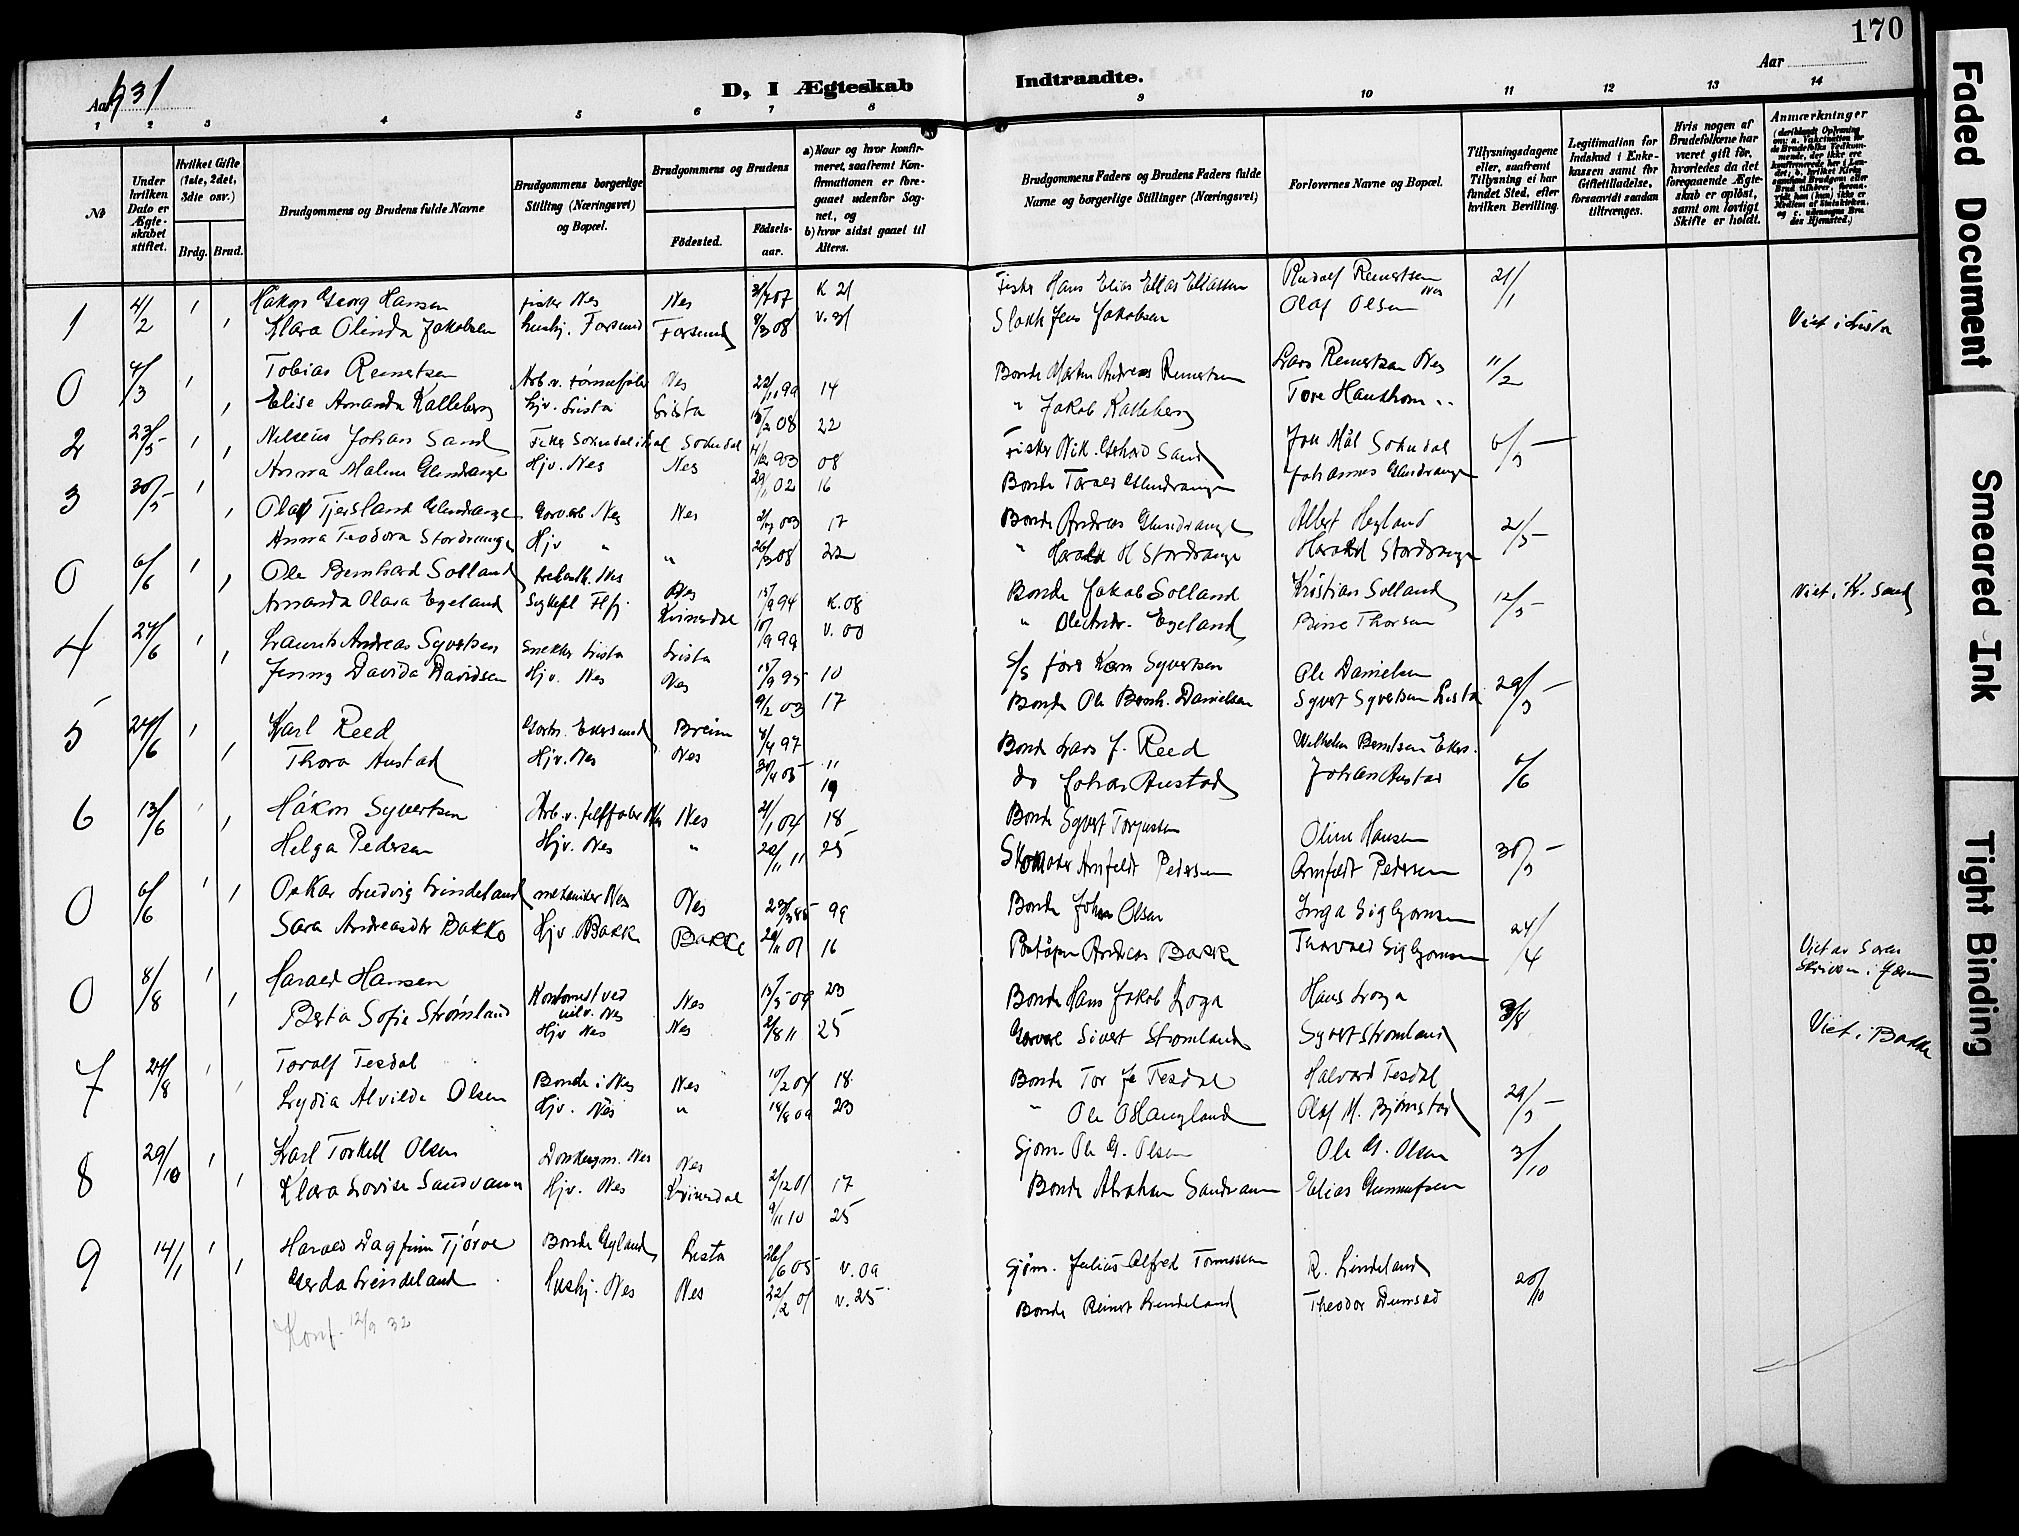 170
Aar 1931
D, I Ægteskab Indtraadte.
Aar
1 2 3 4 5 6 7 8 9 10 11 12 13 14
№
Under hvilken Dato er Ægteskabet stiftet.
Hvilket Gifte (1ste, 2det, 3die osv.)
Brdg. Brud.
Brudgommens og Brudens fulde Navne
Brudgommens borgerlige Stilling (Næringsvei) og Bopæl.
Brudgommens og Brudens
Födested. Födselsaar.
a) Naar og hvor konfirmeret, saafremt Konfirmationen er foregaaet udenfor Sognet, og
b) hvor sidst gaaet til Alters.
Brudgommens Faders og Brudens Faders fulde Navne og borgerlige Stillinger (Næringsvei)
Forlovernes Navne og Bopæl.
Tillysningsdagene eller, saafremt Tillysning ei har fundet Sted, efter hvilken Bevilling.
Legitimation for Indskud i Enkekassen samt for Giftetilladelse, forsaavidt saadan tiltrænges.
Hvis nogen af Brudefolkene har været gift før, hvorledes da det foregaaende Ægteskab er opløst, samt om lovligt Skifte er holdt.
Anmærkninger
1 4/2 1 Håkon Georg Hansen fisker Nes Nes 07 K 21 Fisker Hans Elias Eliassen Rudolf Reinertsen Nes 21/1
1 Klara Olinda Jakobsen hushj. Farsund Farsund 8/3 08 v. 31 Jens Jakobsen Olaf Olsen Viet i Lista
0 4/3 1 Tobias Reinertsen Arb. v. tønnefabr Nes 22/10 99 14 Bonde Martin Andreas Reinertsen Lars Reinertsen Nes 11/2
1 Elise Amanda Kalleberg hjv. Lista Lista 15/2 08 22 " Jakob Kalleberg Tore Haushom "
2 23/5 1 Nilseus Johan Sand Fisker Sokndal Sokndal 93 08 Fisker Nik. Gerhard Sand Jon Mål Sokndal 6/5
1 Anna Malene Glendrange Hjv. Nes Nes 29/1 02 16 Bonde Torvald Glendrange Johannes Glendrange
3 30/5 1 Olaf Tjersland Glendrange Garvarb Nes Nes 03 17 Bonde Andreas Glendrange Albert Hegland 21/5
1 Anna Teodora Stordrange Hjv " " 26/3 08 22 " Harald H Stordrange Harald Stordrange
0 6/6 1 Ole Bernhard Solland Nes Nes 15/9 94 K. 08 Bonde Jakob Solland Kristian Solland 12/5 Viet i Kr. Sand
1 Amanda Olava Egeland Sykepl Flfj. Kvinesdal 10/9 99 v. 00 " Ole Andr. Egeland Thorsen
4 27/6 1 Laurits Andreas Syvertsen snekker Lista Lista 15/9 95 10 S/S fører Karn Syvertsen Ole Danielsen 29/5
1 Jenny Davida Davidsen Hjv. Nes Nes 9/2 03 17 Bonde Ole Bernh. Danielsen Syvert Syvertsen Lista
5 27/6 1 Karl Reed Gartn. Ekersund Breim 4/4 97 11 Bonde Lars J. Reed Wilhelm Berntsen Ekers. 6/6
1 Thora Austad Hjv. Nes Nes 30/4 05 19 do Johan Austad Johan Austad
6 13/6 1 Håkon Syvertsen Arb. v. filffabr Nes Nes 21/1 04 18 Bonde Syvert Torjussen Oline Hansen 30/5
1 Helga Pedersen Hjv. Nes " 20/11 11 25 Skomaker Arnfeldt Pedersen Arnfeldt Pedersen
0 6/6 1 Oskar Ludvig Lindeland mekaniker Nes Nes 23/3 85 99 Bonde Johan Olsen Inga Sigbjørnsen 24/4
1 Sara Andreasdtr Bakke Hjv. Bakke Bakke 20/11 01 16 Poståpn Andreas Bakke Thorvald Sigbjørnsen Viet av Soren Skriveren i Jæren
0 8/8 1 Harald Hansen Kontorrist ved Nes Nes 15/5 09 23 Bonde Hans Jakob Loga Hans Loga 3/8
1 Berta Sofie Strømland Hjv Nes Nes 2/8 11 25 Garver Sivert Strømland Syvert Strømland Viet i Bakke
7 24/8 1 Toralf Tesdal Bonde i Nes Nes 10/2 04 18 Bonde Tor Tesdal Halvard Tesdal 29/5
1 Lydia Alvilde Olsen Hjv. Nes " 18/8 09 23 " Ole O Haugland Olaf M. Bjørnstad
8 29/10 1 Karl Torkell Olsen Donkeym. Nes Nes 2/12 01 17 Sjøm. Ole G. Olsen Ole G. Olsen 3/10
1 Klara Lovise Sandvann Hjv. Nes Kvinesdal 9/11 10 25 Bonde Abraham Sandvann Elias Gunnufsen
9 14/1 1 Harald Dagfinn Tjørve Bonde Gyland Lista 26/6 05 v. 09 Sjøm. Julius Alfred Tønnessen R. Lindeland 20/10
1 Gerda Lindeland Hushj. Nes Nes 22/2 01 v. 25 Bonde Reinert Lindeland Theodor Dunsæd
Konf. 12/9 32
Faded Document
Smeared Ink
Tight Binding